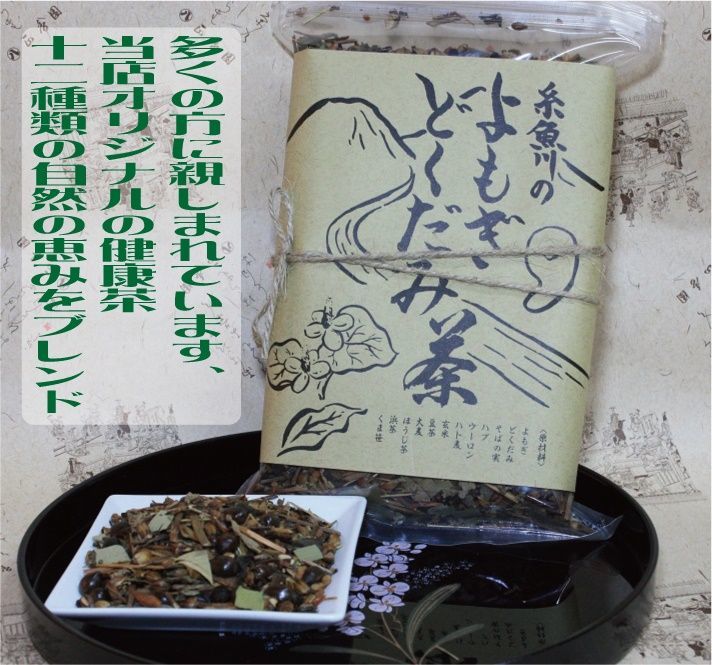 多くの方に親しまれています、
当店オリジナルの健康茶
十二種類の自然の恵みをブレンド
糸魚川の
よもぎ
どくだみ茶
〈原材料〉
よもぎ
どくだみ
そばの実
ハブ
ウーロン
ハト麦
玄米
豆茶
大麦
ほうじ茶
浜茶
くま笹